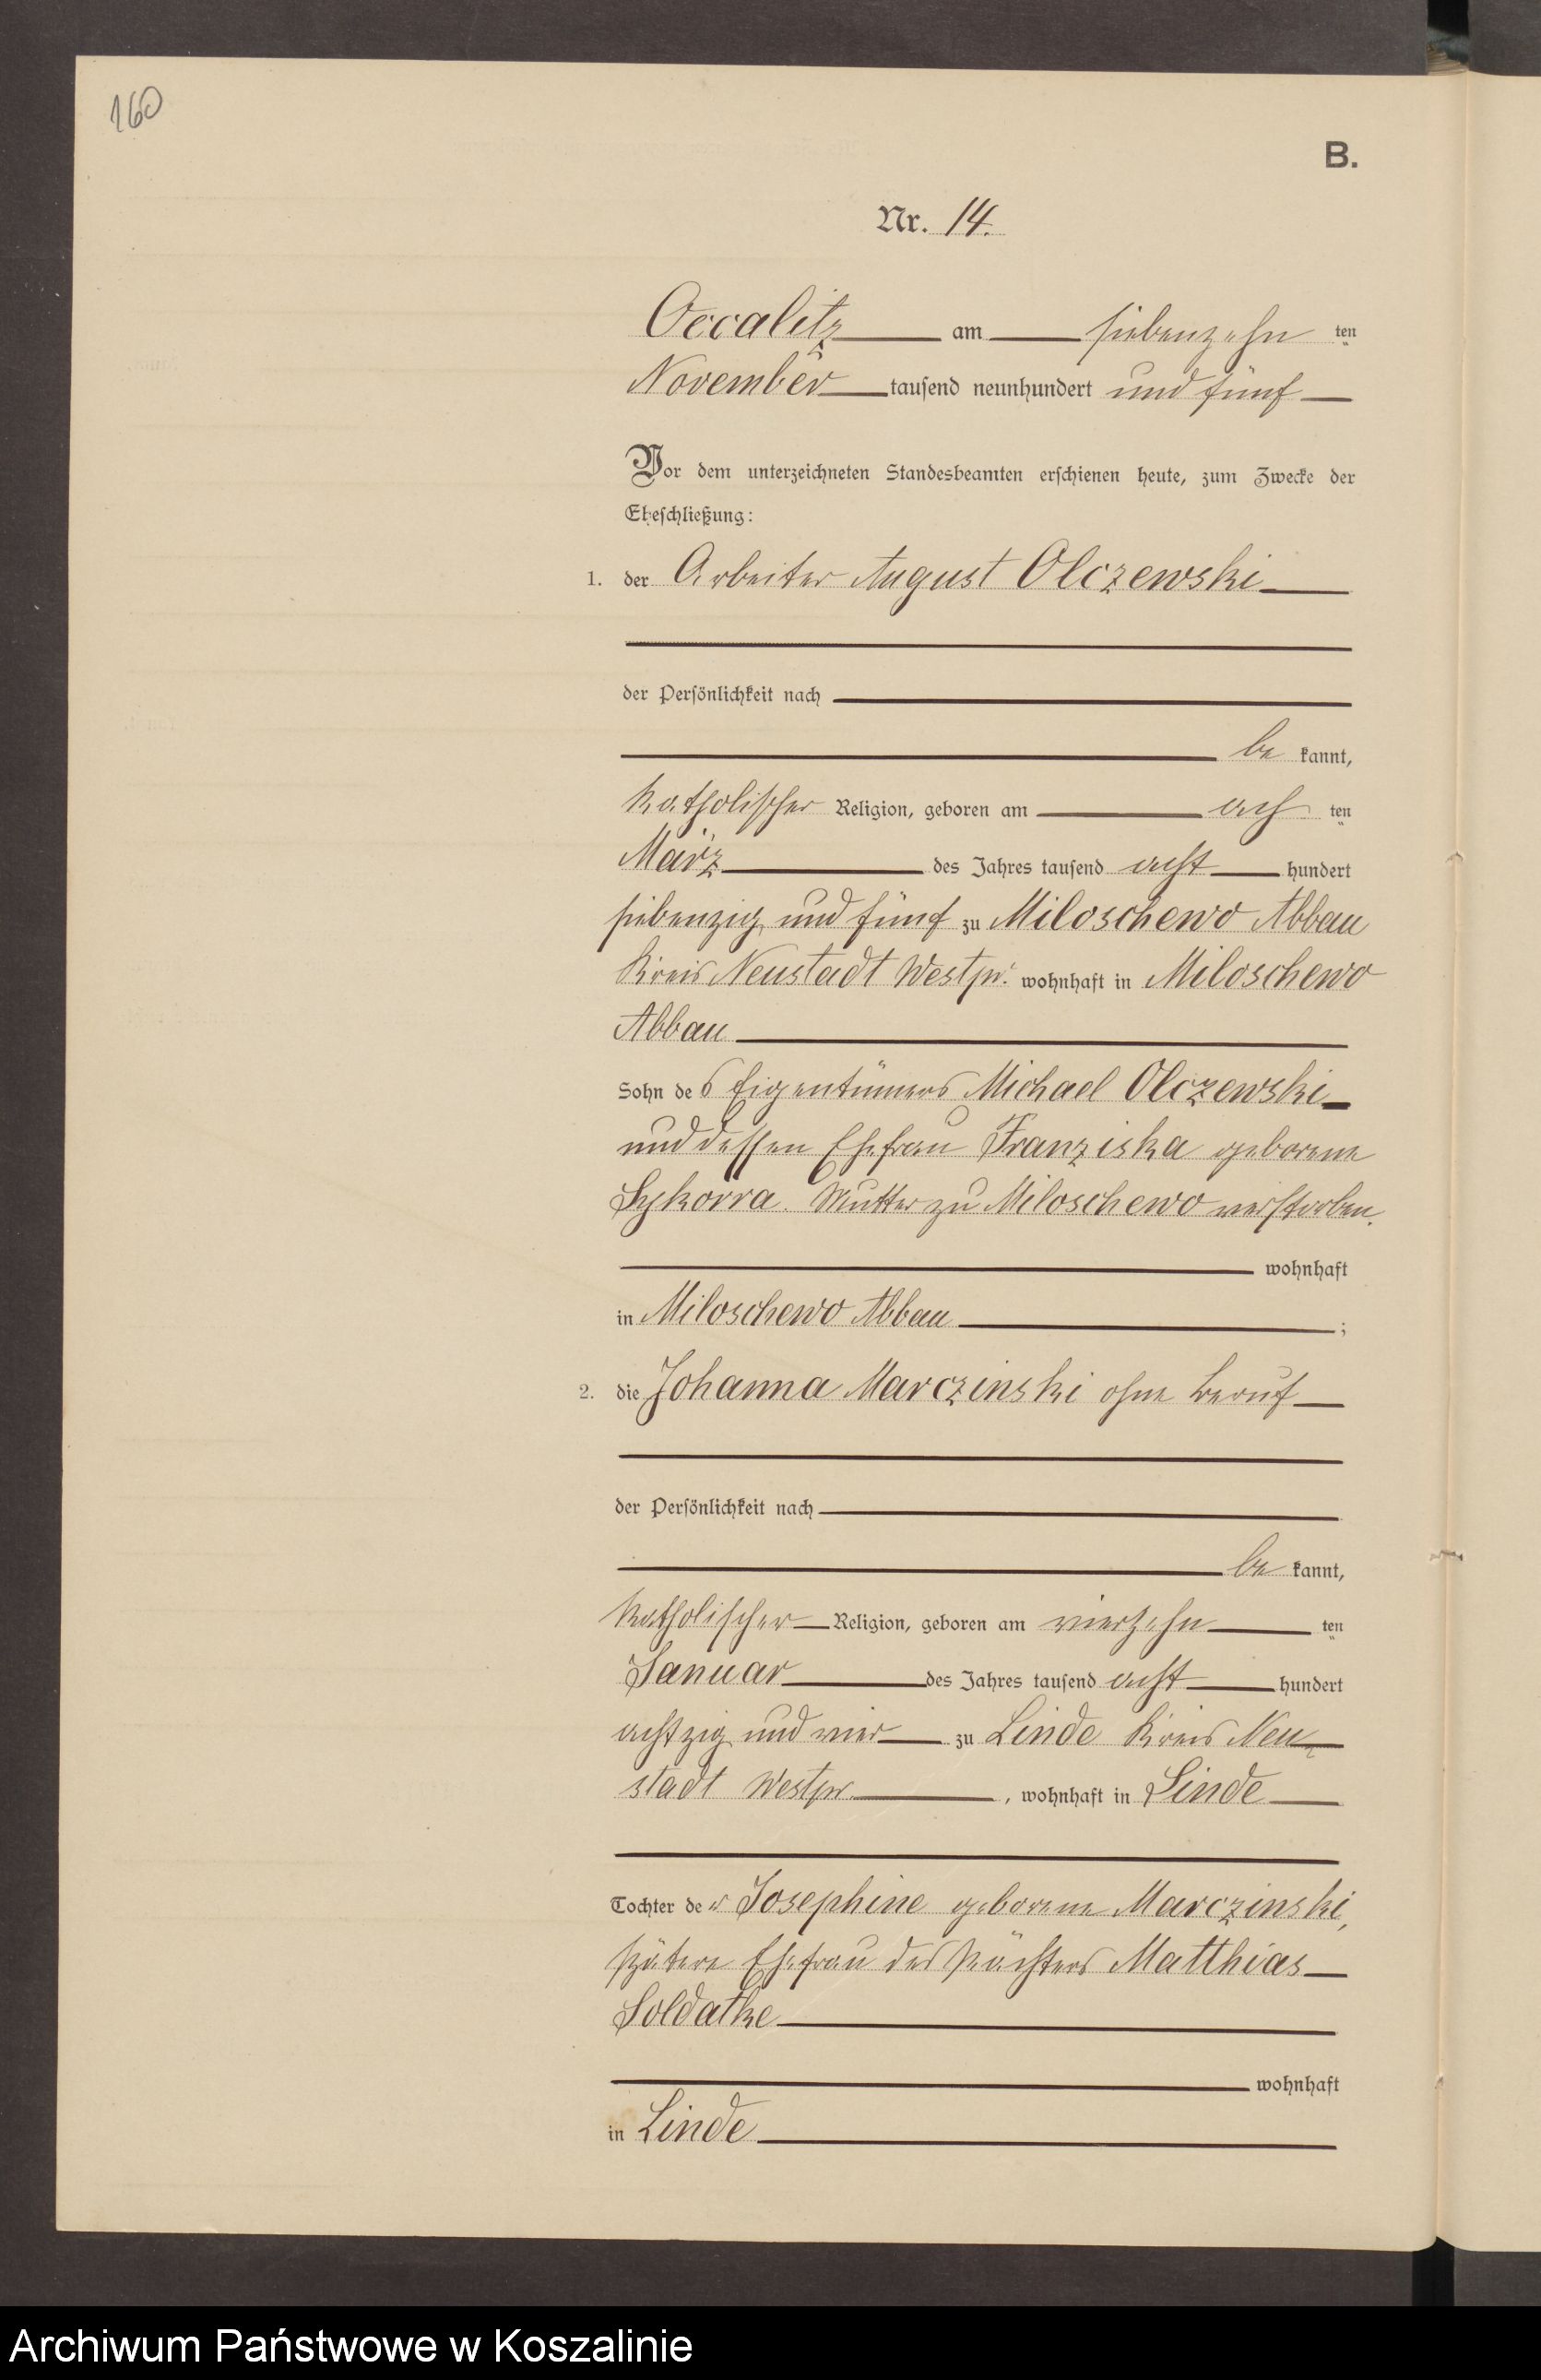 160
B.
Nr. 14.
Occalitz am siebenzehn ten
November tausend neunhundert und fünf
Vor dem unterzeichneten Standesbeamten erschienen heute, zum Zwecke der
Eheschließung:
1. der Arbeiter August Olczewski
der Persönlichkeit nach
be kannt,
katholischer Religion, geboren am ach ten
März des Jahres tausend acht hundert
siebenzig und fünf zu Miloschewo Abbau
Kreis Neustadt Westpr. wohnhaft in Miloschewo
Abbau
Sohn des Eigentümers Michael Olczewski
und dessen Ehefrau Franziska geborene
Sykorra. Mutter zu Miloschewo verstorben.
wohnhaft
in Miloschewo Abbau ;
2. die Johanna Marczinski ohne Beruf
der Persönlichkeit nach
be kannt,
katholischer Religion, geboren am vierzehn ten
Januar des Jahres tausend acht hundert
achtzig und vier zu Linde Kreis Neu-
stadt Westpr. , wohnhaft in Linde
Tochter der Josephine geborene Marczinski,
spätere Ehefrau des Pächters Matthias
Soldatke
wohnhaft
in Linde
Archiwum Państwowe w Koszalinie